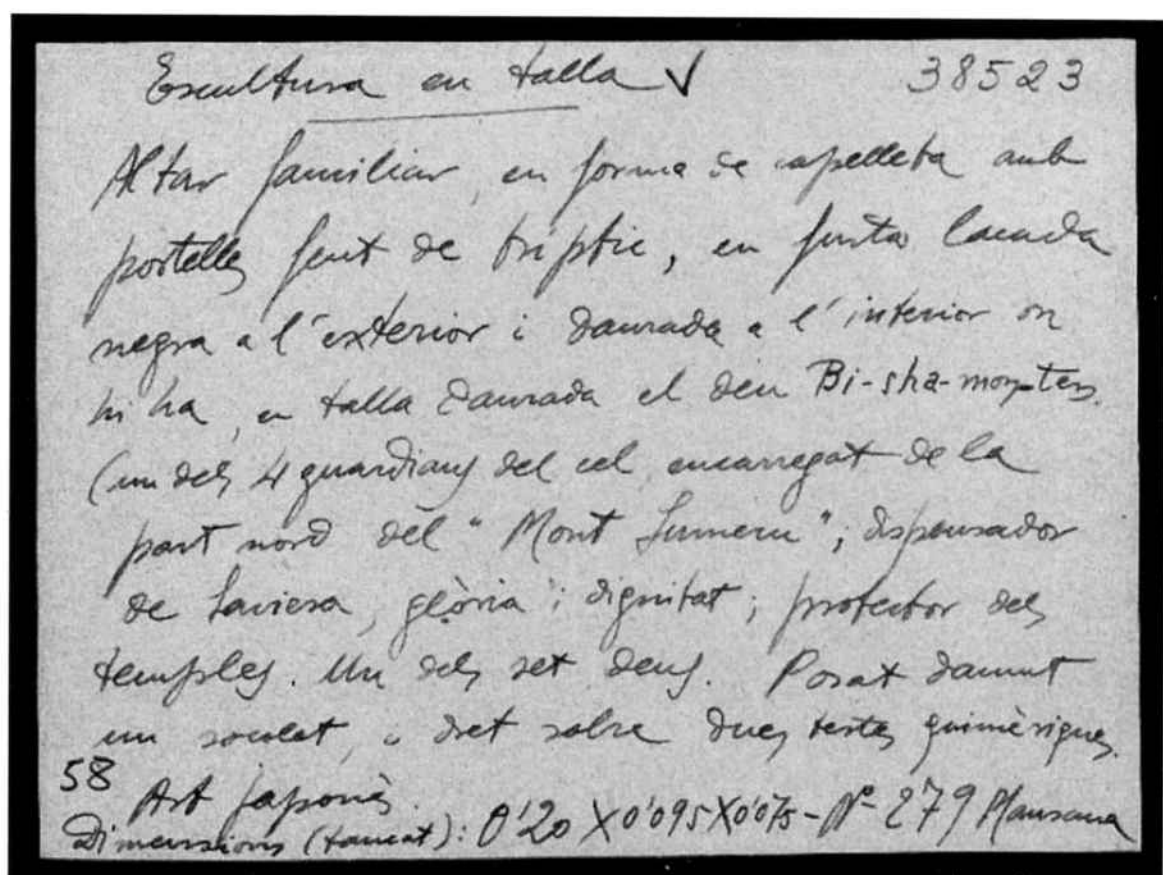 Escultura en talla ✓ 38523
Altar familiar, en forma de capelleta amb
portelles fent de tríptic, en fusta lacada
negra a l'exterior i daurada a l'interior on
hi ha, en talla daurada el deu Bi-sha-mon-ten.
(un dels 4 guardians del cel, encarregat de la
part nord del "Mont Sumeru"; dispensador
de saviesa, glòria i dignitat; protector dels
temples. Un dels set deus. Posat damunt
un socolet, i dret sobre dues testes quimèriques.
58 Art japonès.
Dimensions (tancat): 0'20 X 0'095 X 0'075 - Nº 279 Mansana